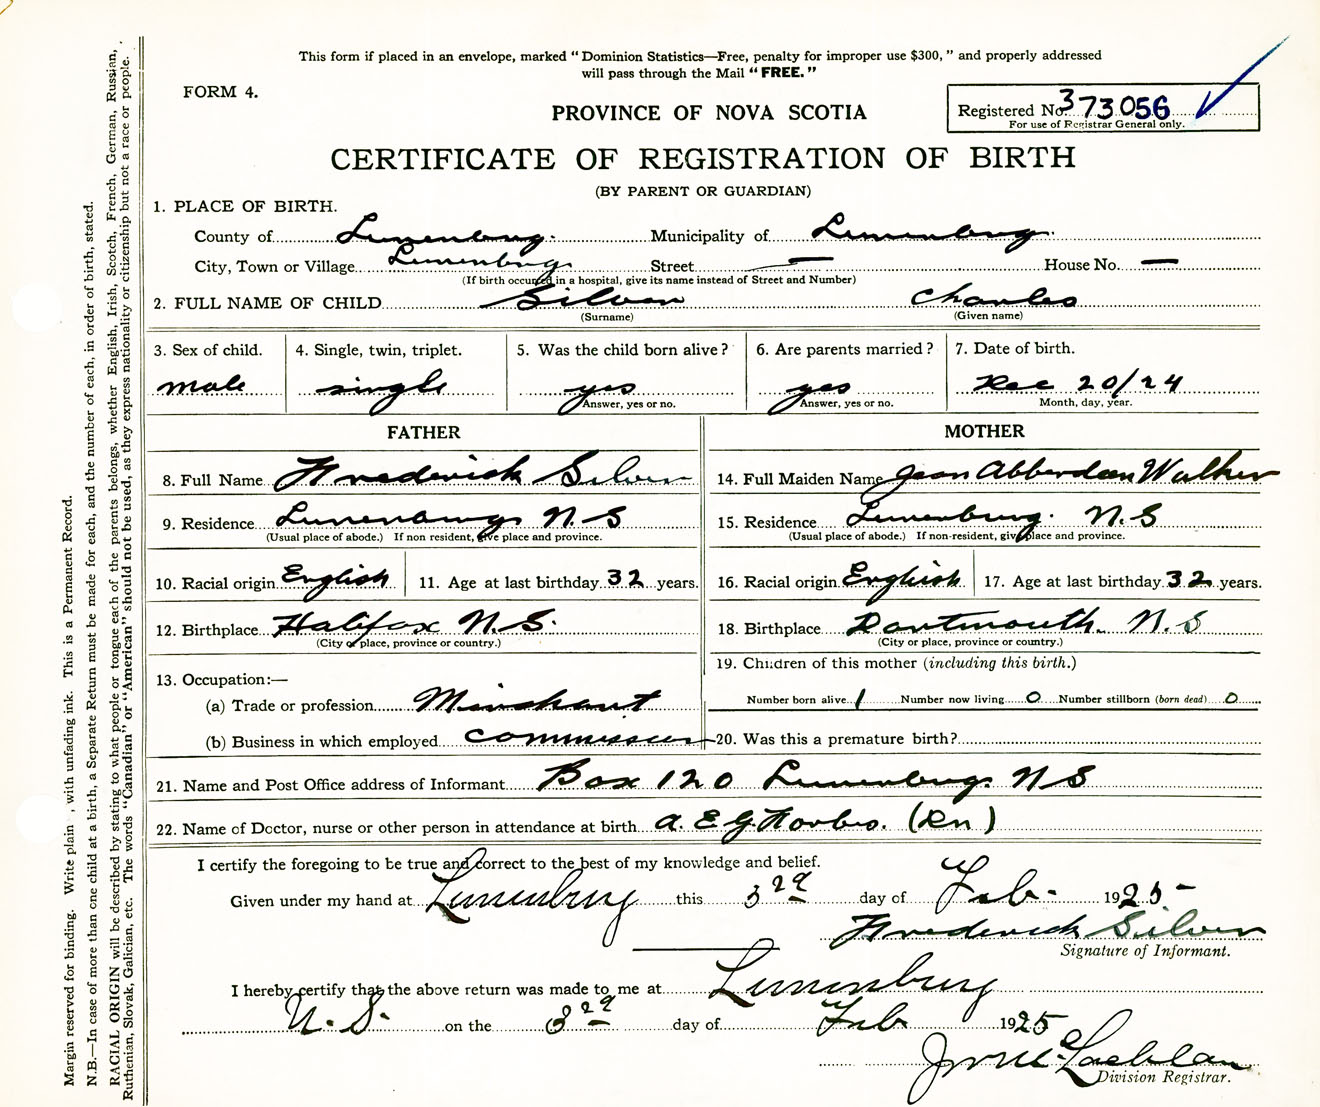 This form if placed in an envelope, marked “Dominion Statistics—Free, penalty for improper use $300,” and properly addressed
will pass through the Mail “FREE.”
FORM 4.
PROVINCE OF NOVA SCOTIA
Registered No. 373056
For use of Registrar General only.
CERTIFICATE OF REGISTRATION OF BIRTH
(BY PARENT OR GUARDIAN)
1. PLACE OF BIRTH.
County of Lunenburg. Municipality of Lunenburg.
City, Town or Village Lunenburg Street — House No. —
(If birth occurred in a hospital, give its name instead of Street and Number)
2. FULL NAME OF CHILD Silver Charles
(Surname) (Given name)
3. Sex of child. 4. Single, twin, triplet. 5. Was the child born alive? 6. Are parents married? 7. Date of birth.
male single yes yes Dec 20/24
Answer, yes or no. Answer, yes or no. Month, day, year.
FATHER MOTHER
8. Full Name Frederick Silver 14. Full Maiden Name Jean Abberdeen Walker
9. Residence Lunenburg N.S 15. Residence Lunenburg. N.S
(Usual place of abode.) If non resident, give place and province. (Usual place of abode.) If non-resident, give place and province.
10. Racial origin English 11. Age at last birthday 32 years. 16. Racial origin English 17. Age at last birthday 32 years.
12. Birthplace Halifax N.S. 18. Birthplace Dartmouth. N.S
(City or place, province or country.) (City or place, province or country.)
13. Occupation:— 19. Children of this mother (including this birth.)
(a) Trade or profession Mirchant Number born alive 1 Number now living 0 Number stillborn (born dead) 0
(b) Business in which employed commission 20. Was this a premature birth?
21. Name and Post Office address of Informant Box 120 Lunenburg. N S
22. Name of Doctor, nurse or other person in attendance at birth a. E G. Forbes. (Rn)
I certify the foregoing to be true and correct to the best of my knowledge and belief.
Given under my hand at Lunenburg this 3rd day of Feb. 1925
Frederick Silver
Signature of Informant.
I hereby certify that the above return was made to me at Lunenburg
N.S. on the 3rd day of Feb 1925
McLachlan
Division Registrar.
Margin reserved for binding. Write plain , with unfading ink. This is a Permanent Record.
N.B.—In case of more than one child at a birth, a Separate Return must be made for each, and the number of each, in order of birth, stated.
RACIAL ORIGIN will be described by stating to what people or tongue each of the parents belongs, whether English, Irish, Scotch, French, German, Russian,
Ruthenian, Slovak, Galician, etc. The words “Canadian” or “American” should not be used, as they express nationality or citizenship but not a race or people.